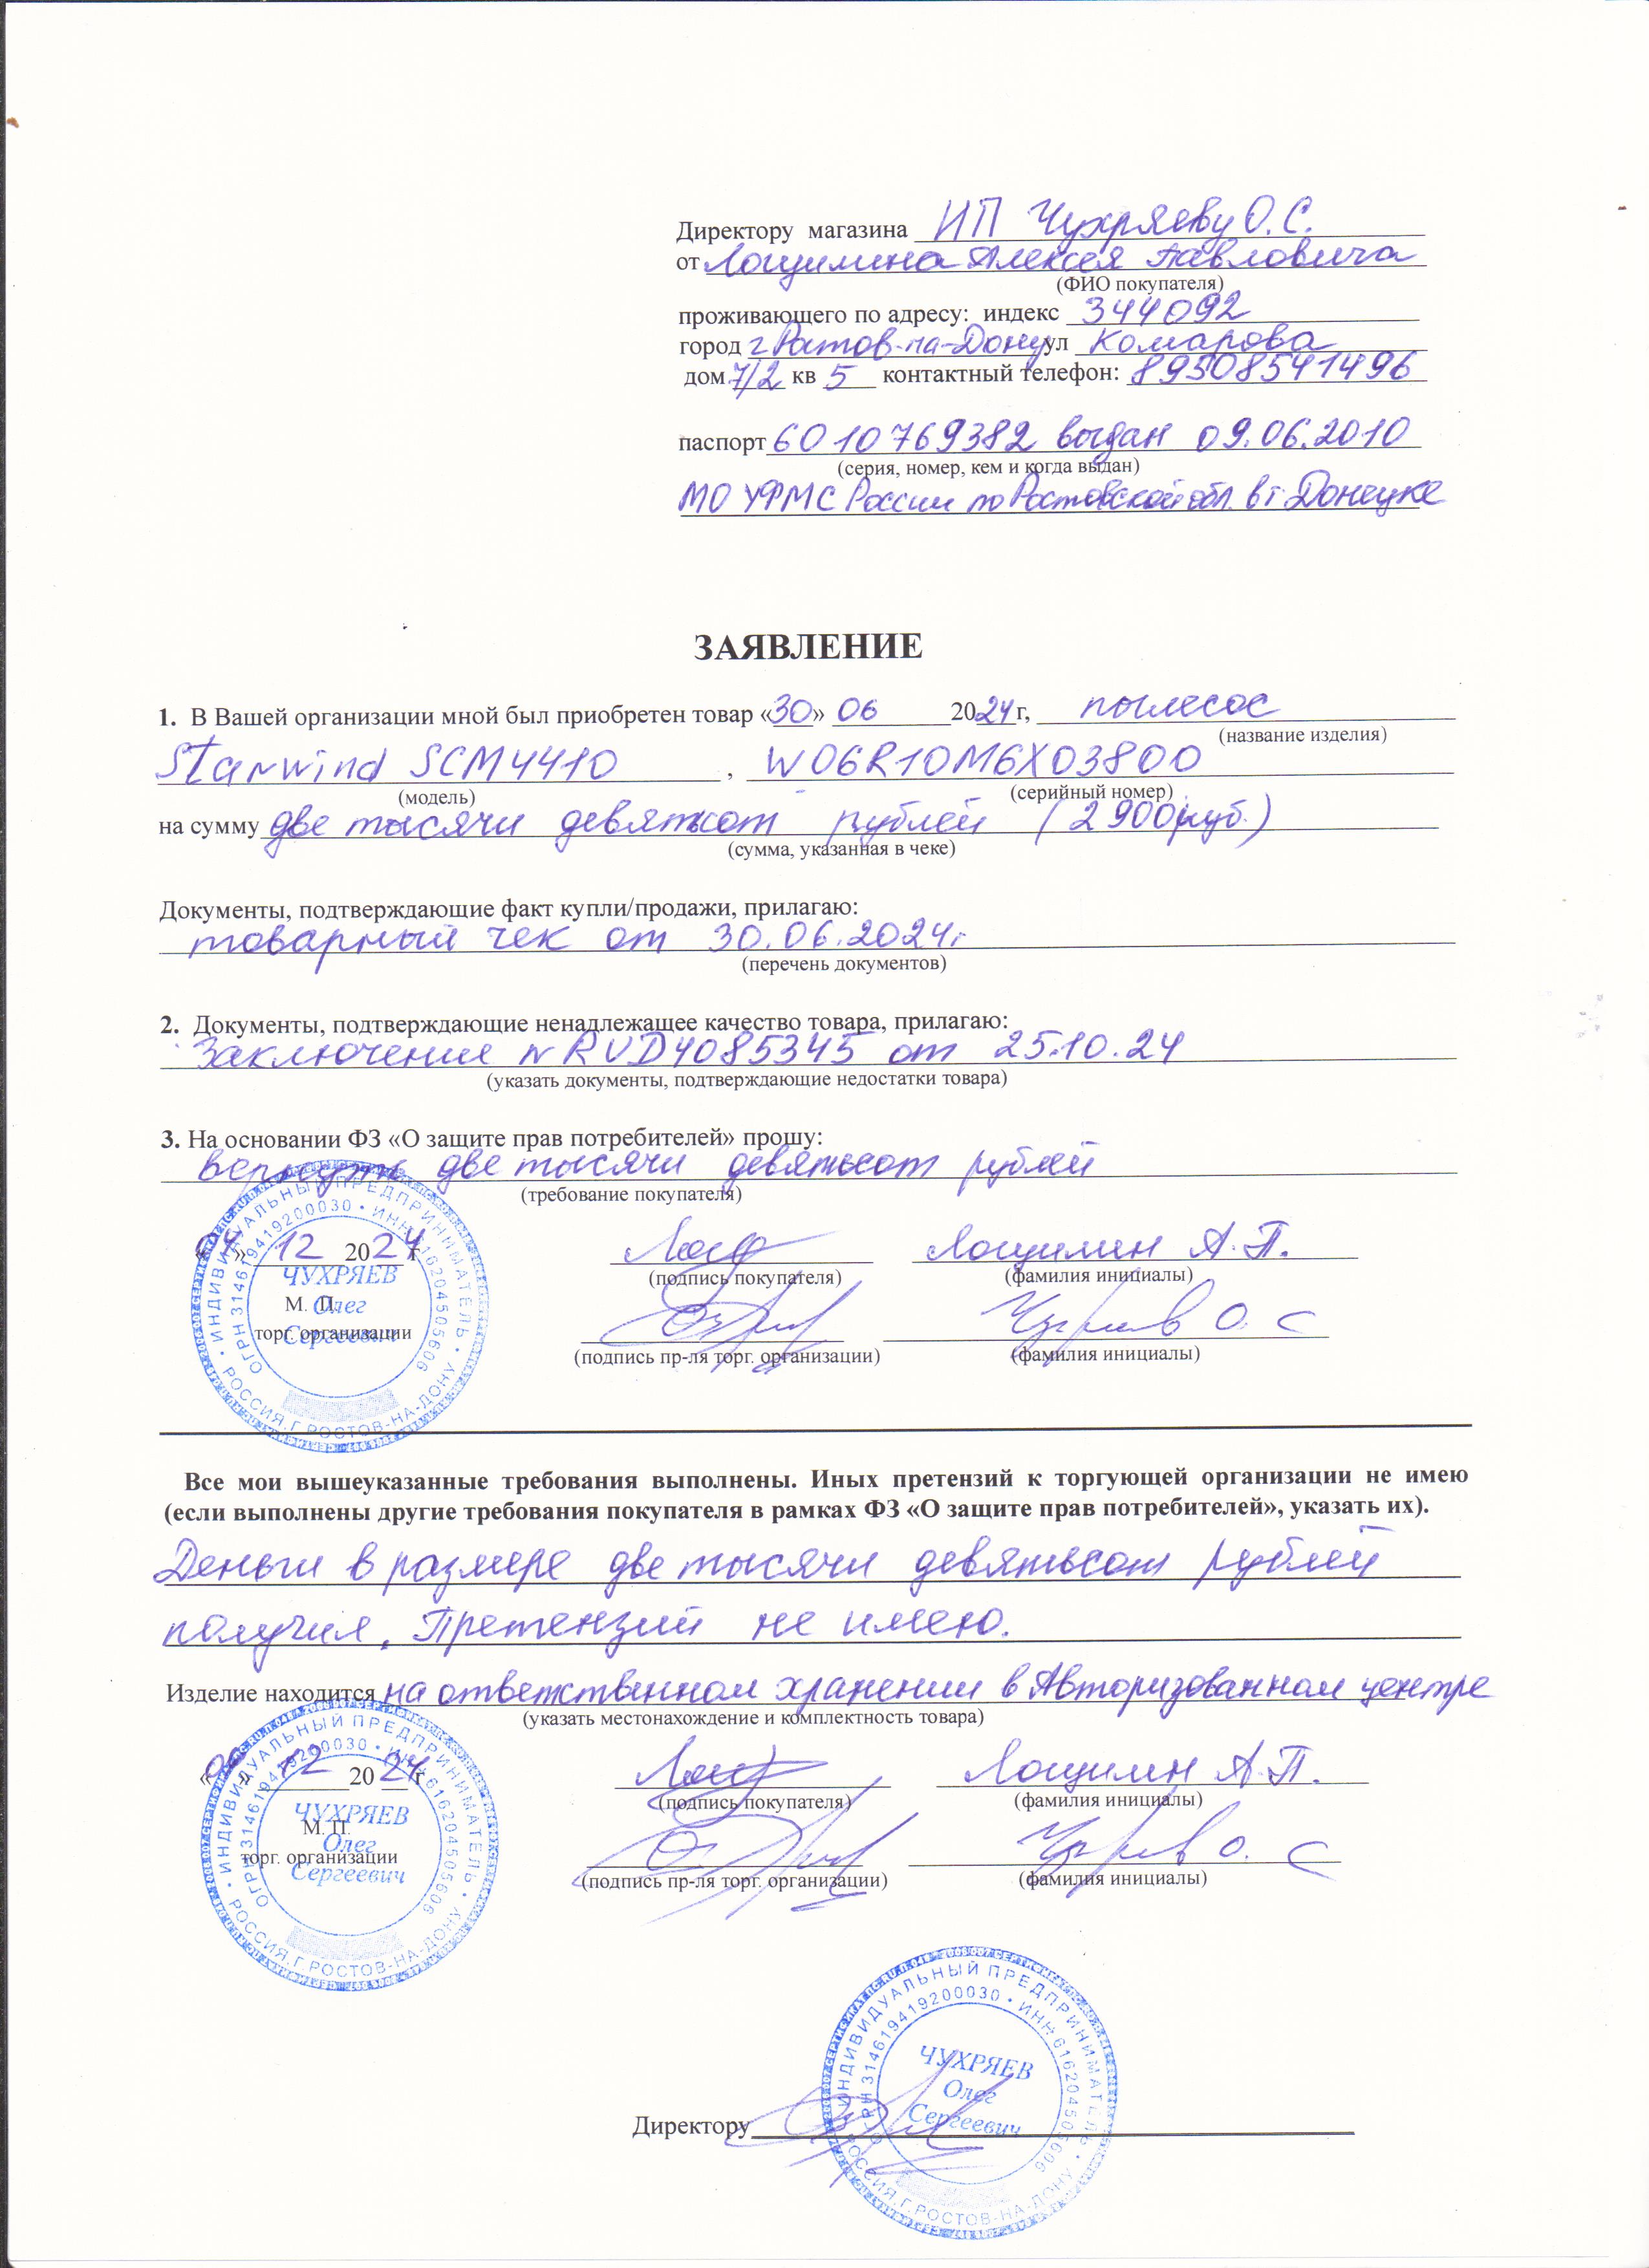 Директору магазина ИП Чухряеву О.С.
от Лощилина Алексея Павловича
(ФИО покупателя)
проживающего по адресу: индекс 344092
город г Ростов-на-Дону ул Комарова
дом 7/2 кв 5 контактный телефон: 89508541496
паспорт 6010769382 выдан 09.06.2010
(серия, номер, кем и когда выдан)
МО УФМС России по Ростовской обл. в г. Донецке
ЗАЯВЛЕНИЕ
1. В Вашей организации мной был приобретен товар «30» 06 2024г, пылесос
(название изделия)
Starwind SCM4410, W06R10M6X03800
(модель) (серийный номер)
на сумму две тысячи девятьсот рублей (2900руб.)
(сумма, указанная в чеке)
Документы, подтверждающие факт купли/продажи, прилагаю:
товарный чек от 30.06.2024г
(перечень документов)
2. Документы, подтверждающие ненадлежащее качество товара, прилагаю:
Заключение N RVD4085345 от 25.10.24
(указать документы, подтверждающие недостатки товара)
3. На основании ФЗ «О защите прав потребителей» прошу:
вернуть две тысячи девятьсот рублей
(требование покупателя)
« » 12 2024 г Лощилин А.П.
(подпись покупателя) (фамилия инициалы)
М. П.
торг. организации
Чухряев О. С
(подпись пр-ля торг. организации) (фамилия инициалы)
ИНДИВИДУАЛЬНЫЙ ПРЕДПРИНИМАТЕЛЬ • РОССИЯ, Г.РОСТОВ-НА-ДОНУ •
ОГРН 314619419200030 • ИНН 616204505606
ЧУХРЯЕВ
Олег
Сергеевич
Все мои вышеуказанные требования выполнены. Иных претензий к торгующей организации не имею
(если выполнены другие требования покупателя в рамках ФЗ «О защите прав потребителей», указать их).
Деньги в размере две тысячи девятьсот рублей
получил, Претензий не имею.
Изделие находится на ответственном хранении в Авторизованном центре
(указать местонахождение и комплектность товара)
« » 12 20 24 г Лощилин А.П.
(подпись покупателя) (фамилия инициалы)
М. П.
торг. организации
Чухряев О. С
(подпись пр-ля торг. организации) (фамилия инициалы)
ИНДИВИДУАЛЬНЫЙ ПРЕДПРИНИМАТЕЛЬ • РОССИЯ, Г.РОСТОВ-НА-ДОНУ •
ОГРН 314619419200030 • ИНН 616204505606
ЧУХРЯЕВ
Олег
Сергеевич
Директору
ИНДИВИДУАЛЬНЫЙ ПРЕДПРИНИМАТЕЛЬ • РОССИЯ, Г.РОСТОВ-НА-ДОНУ •
ОГРН 314619419200030 • ИНН 616204505606
ЧУХРЯЕВ
Олег
Сергеевич